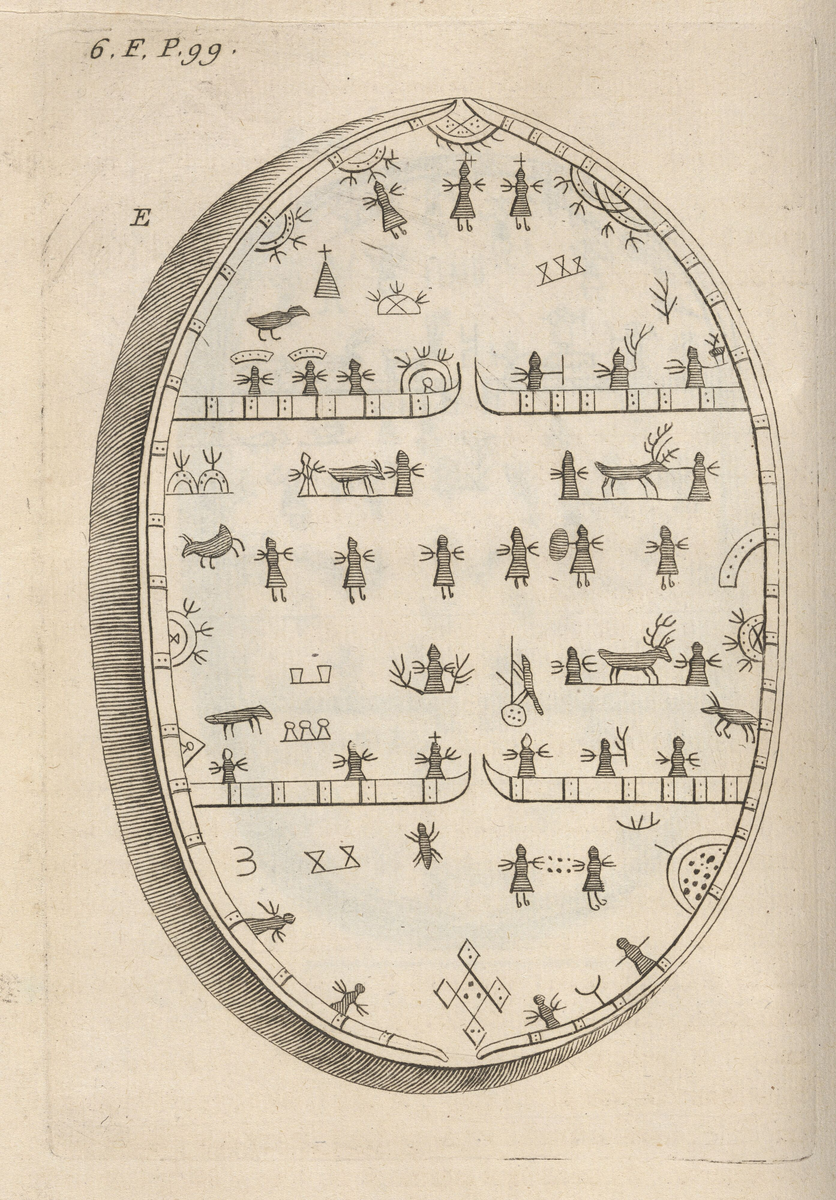 6. F. P. 99.
E